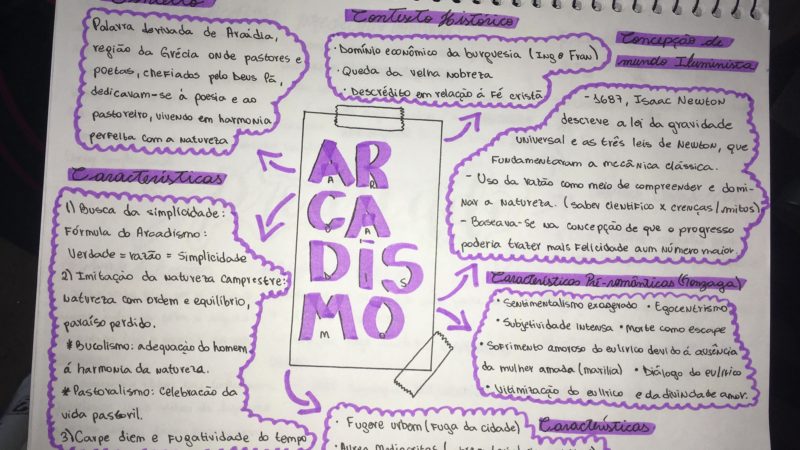 Conceito
Palavra derivada de Arcádia,
região da Grécia onde pastores e
poetas, chefiados pelo Deus Pã,
dedicavam-se à poesia e ao
pastoreiro, vivendo em harmonia
perfeita com a natureza
Contexto Histórico
· Domínio econômico da burguesia (Ing e Fran)
· Queda da velha nobreza
· Descrédito em relação à Fé cristã
Concepção de
mundo Iluminista
- 1687, Isaac Newton
descreve a lei da gravidade
universal e as três leis de Newton, que
fundamentaram a mecânica clássica.
- Uso da razão como meio de compreender e domi-
nar a natureza. (saber científico x crenças/mitos)
- Baseava-se na concepção de que o progresso
poderia trazer mais felicidade a um número maior.
ARCADISMO
AR
CA
DIS
MO
Características
1) Busca da simplicidade:
Fórmula do Arcadismo:
Verdade = razão = simplicidade
2) Imitação da natureza campestre:
natureza com ordem e equilíbrio,
paraíso perdido.
* Bucolismo: adequação do homem
á harmonia da natureza.
* Pastoralismo: celebração da
vida pastoril.
3) Carpe diem e Fugatividade do tempo
Características Pré-românticas (Gonzaga)
· Sentimentalismo exagerado · Egocentrismo
· Subjetividade intensa · Morte como escape
· Sofrimento amoroso do eu lírico devido á ausência
da mulher amada (marília) · Diálogo do eu lírico
· Vitimização do eu lírico e da divindade amor.
Características
· Fugere urbem (Fuga da cidade)